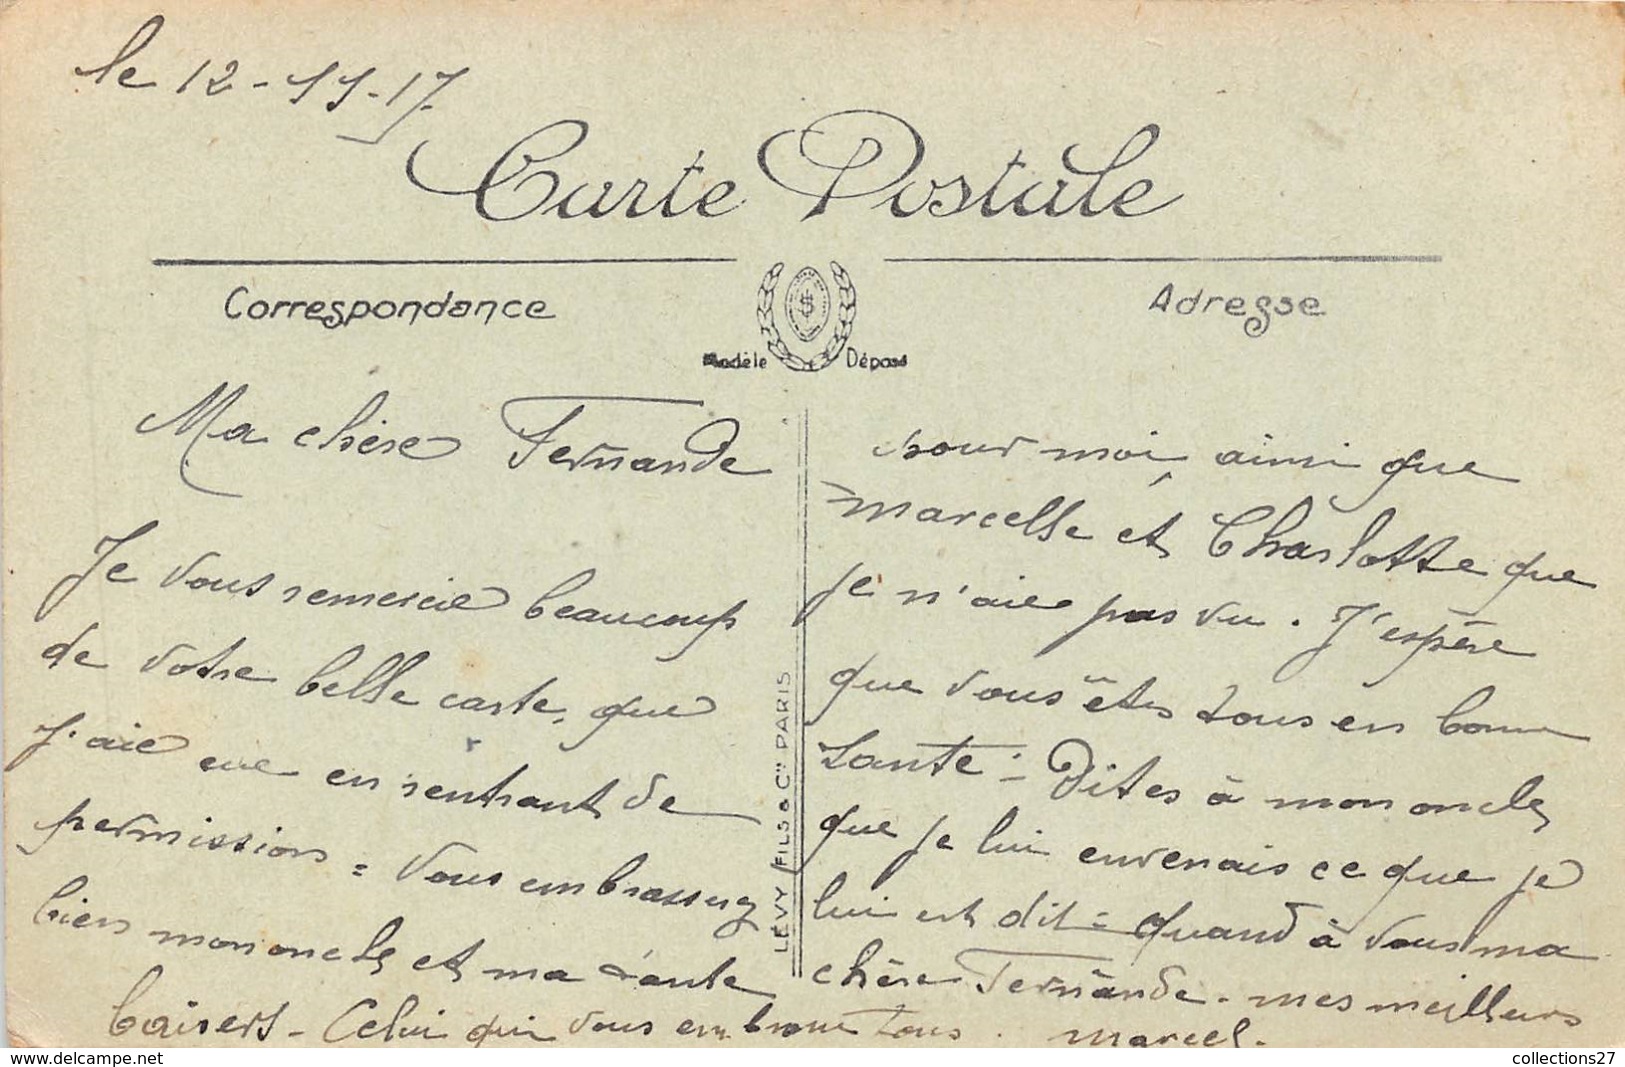 le 12-11-17.
Carte Postale
Correspondance
Adresse
Modèle Déposé
Ma chère Fernande
Je vous remercie beaucoup
de votre belle carte, que
j'aie eue en rentrant de
permission = Vous embrasserez
bien mon oncle et ma tante
pour moi ainsi que
Marcelle et Charlotte que
je n'aie pas vu. J'espère
que vous êtes tous en bonne
santé = Dites à mon oncle
que je lui envenais ce que je
lui est dit = quand à vous ma
chère Fernande - mes meilleurs
baisers - Celui qui vous embrasse tous. Marcel.
LÉVY FILS & Cie PARIS
collections27